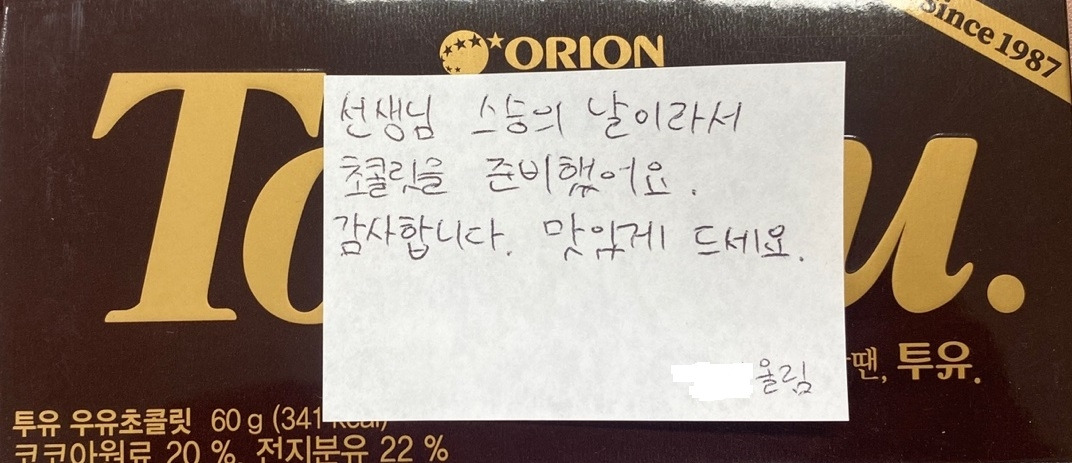 ORION
Since 1987
선생님 스승의 날이라서
초콜릿을 준비했어요.
감사합니다. 맛있게 드세요.
올림
To u.
땐, 투유.
투유 우유초콜릿 60 g (341 kcal)
코코아원료 20 %, 전지분유 22 %